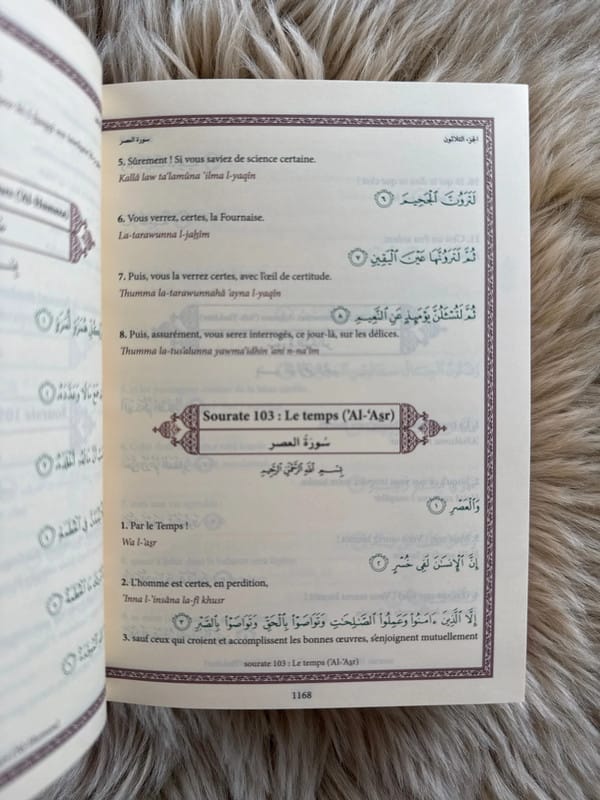 سورة العصر
الجزء الثلاثون
5. Sûrement ! Si vous saviez de science certaine.
Kallâ law ta'lamûna 'ilma l-yaqîn
لَتَرَوُنَّ ٱلْجَحِيمَ ٦
6. Vous verrez, certes, la Fournaise.
La-tarawunna l-jaḥîm
ثُمَّ لَتَرَوُنَّهَا عَيْنَ ٱلْيَقِينِ ٧
7. Puis, vous la verrez certes, avec l'œil de certitude.
Thumma la-tarawunnahâ 'ayna l-yaqîn
ثُمَّ لَتُسْـَٔلُنَّ يَوْمَئِذٍ عَنِ ٱلنَّعِيمِ ٨
8. Puis, assurément, vous serez interrogés, ce jour-là, sur les délices.
Thumma la-tus'alunna yawma'idhin 'ani n-na'îm
Sourate 103 : Le temps ('Al-'Aṣr)
سُورَةُ العصر
بِسْمِ ٱللَّهِ ٱلرَّحْمَٰنِ ٱلرَّحِيمِ
وَٱلْعَصْرِ ١
1. Par le Temps !
Wa l-'aṣr
إِنَّ ٱلْإِنسَٰنَ لَفِى خُسْرٍ ٢
2. L'homme est certes, en perdition,
'Inna l-'insâna la-fî khusr
إِلَّا ٱلَّذِينَ ءَامَنُوا۟ وَعَمِلُوا۟ ٱلصَّٰلِحَٰتِ وَتَوَاصَوْا۟ بِٱلْحَقِّ وَتَوَاصَوْا۟ بِٱلصَّبْرِ ٣
3. sauf ceux qui croient et accomplissent les bonnes œuvres, s'enjoignent mutuellement
sourate 103 : Le temps ('Al-'Aṣr)
1168